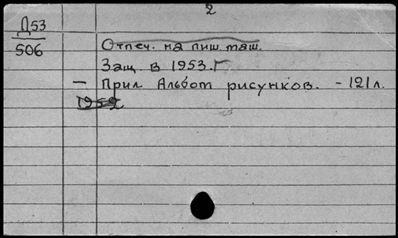 2
Д53
506
Отпеч. на пиш. маш.
Защ. в 1953 г
— Прил. Альбом рисунков. - 121 л.
1952